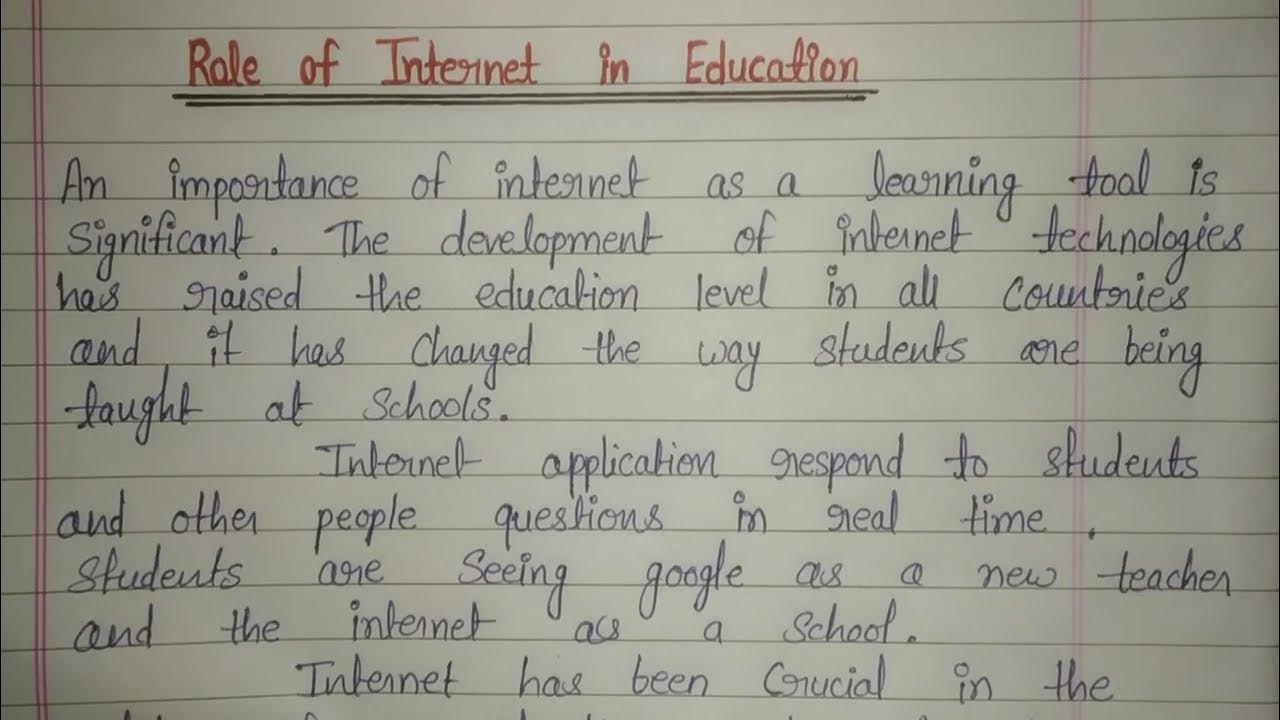 Role of Internet in Education
An importance of internet as a learning tool is
Significant. The development of internet technologies
has raised the education level in all Countries
and it has Changed the way students are being
taught at Schools.
Internet application respond to students
and other people questions in real time.
Students are Seeing google as a new teacher
and the internet as a School.
Internet has been Crucial in the